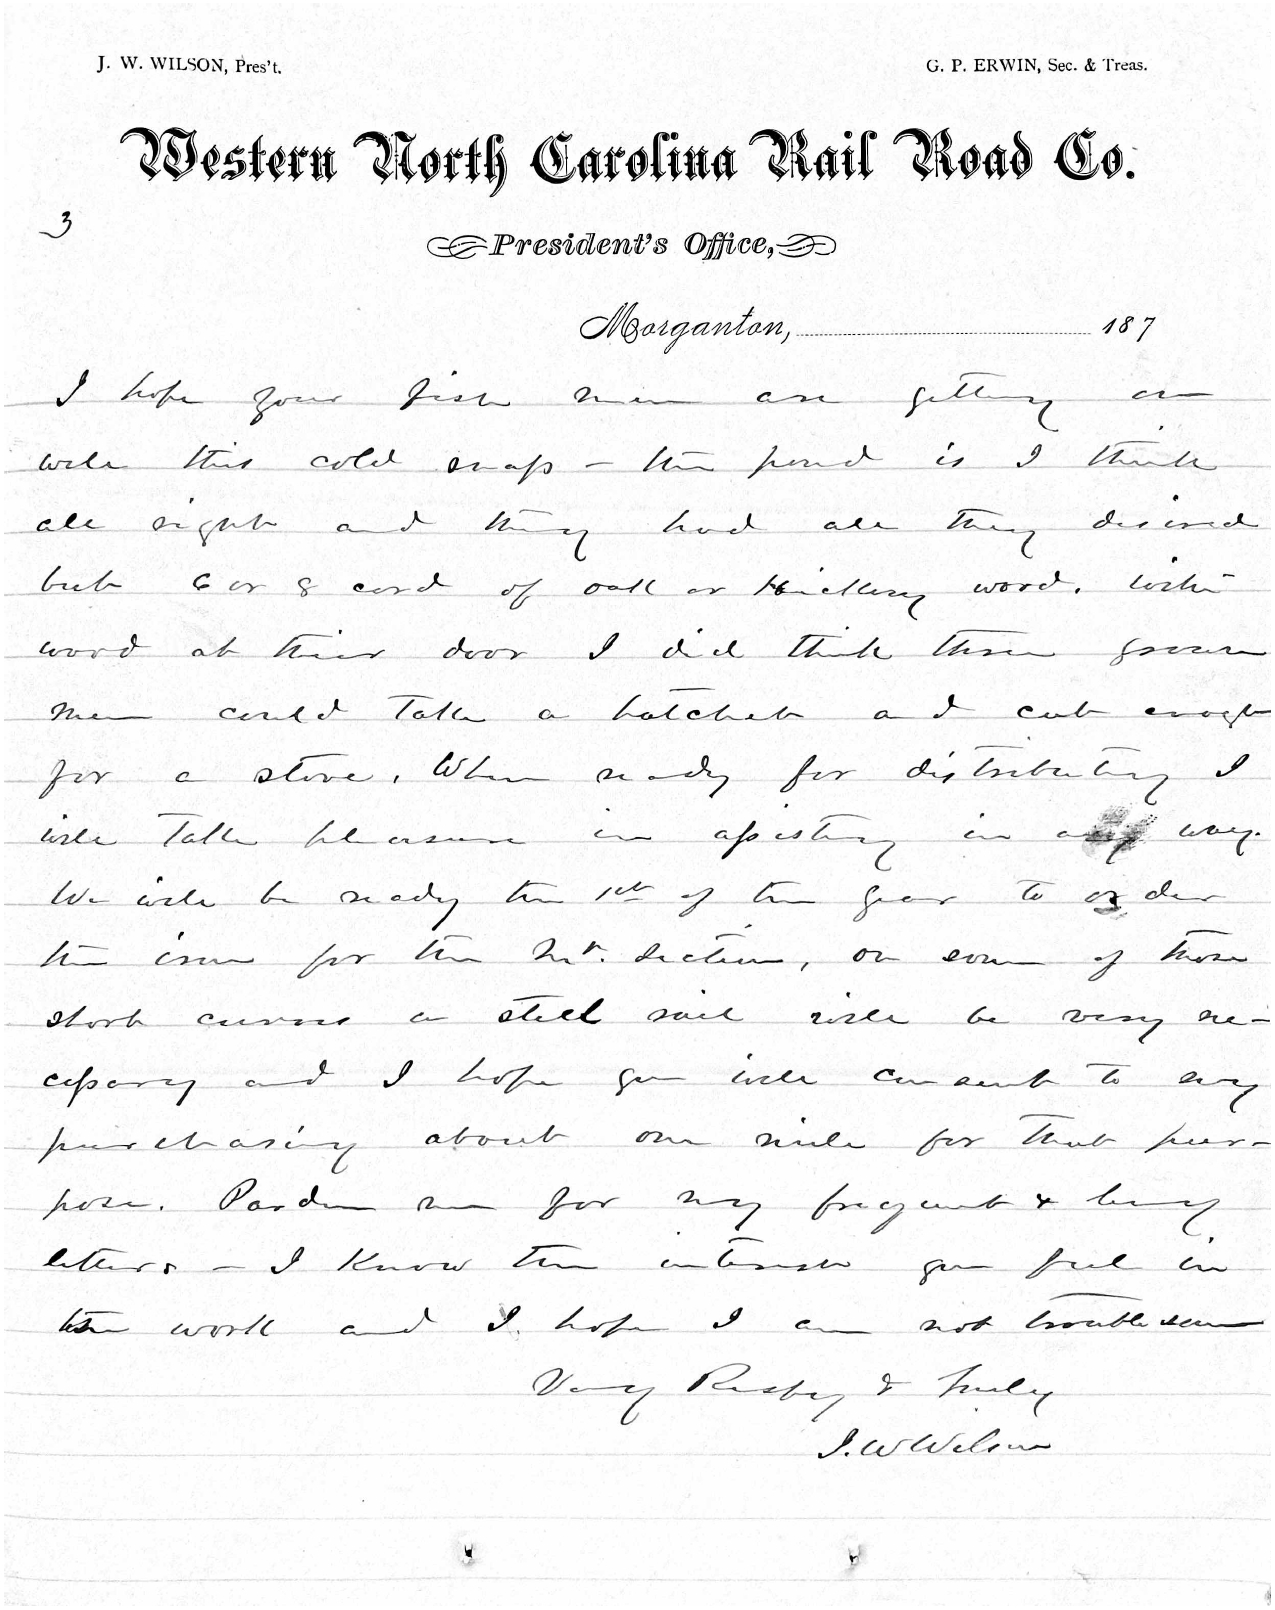 J. W. WILSON, Pres't.
G. P. ERWIN, Sec. & Treas.
Western North Carolina Rail Road Co.
3
President's Office,
Morganton, 187
I hope your fish men are getting on
well this cold snap – the pond is I think
all right and they had all they desired
but 6 or 8 cord of oak or Hickory wood. With
wood at their door I did think three grown
men could take a hatchet and cut enough
for a stove. When ready for distributing I
will take pleasure in assisting in any way.
We will be ready the 1st of the year to order
the iron for the Mt. Section, on some of those
short curves a steel rail will be very ne-
cessary and I hope you will consent to my
purchasing about one mile for that pur-
pose. Pardon me for my frequent & long
letters – I know the interest you feel in
the work and I hope I am not troublesome
Very Respy & truly
J. W Wilson